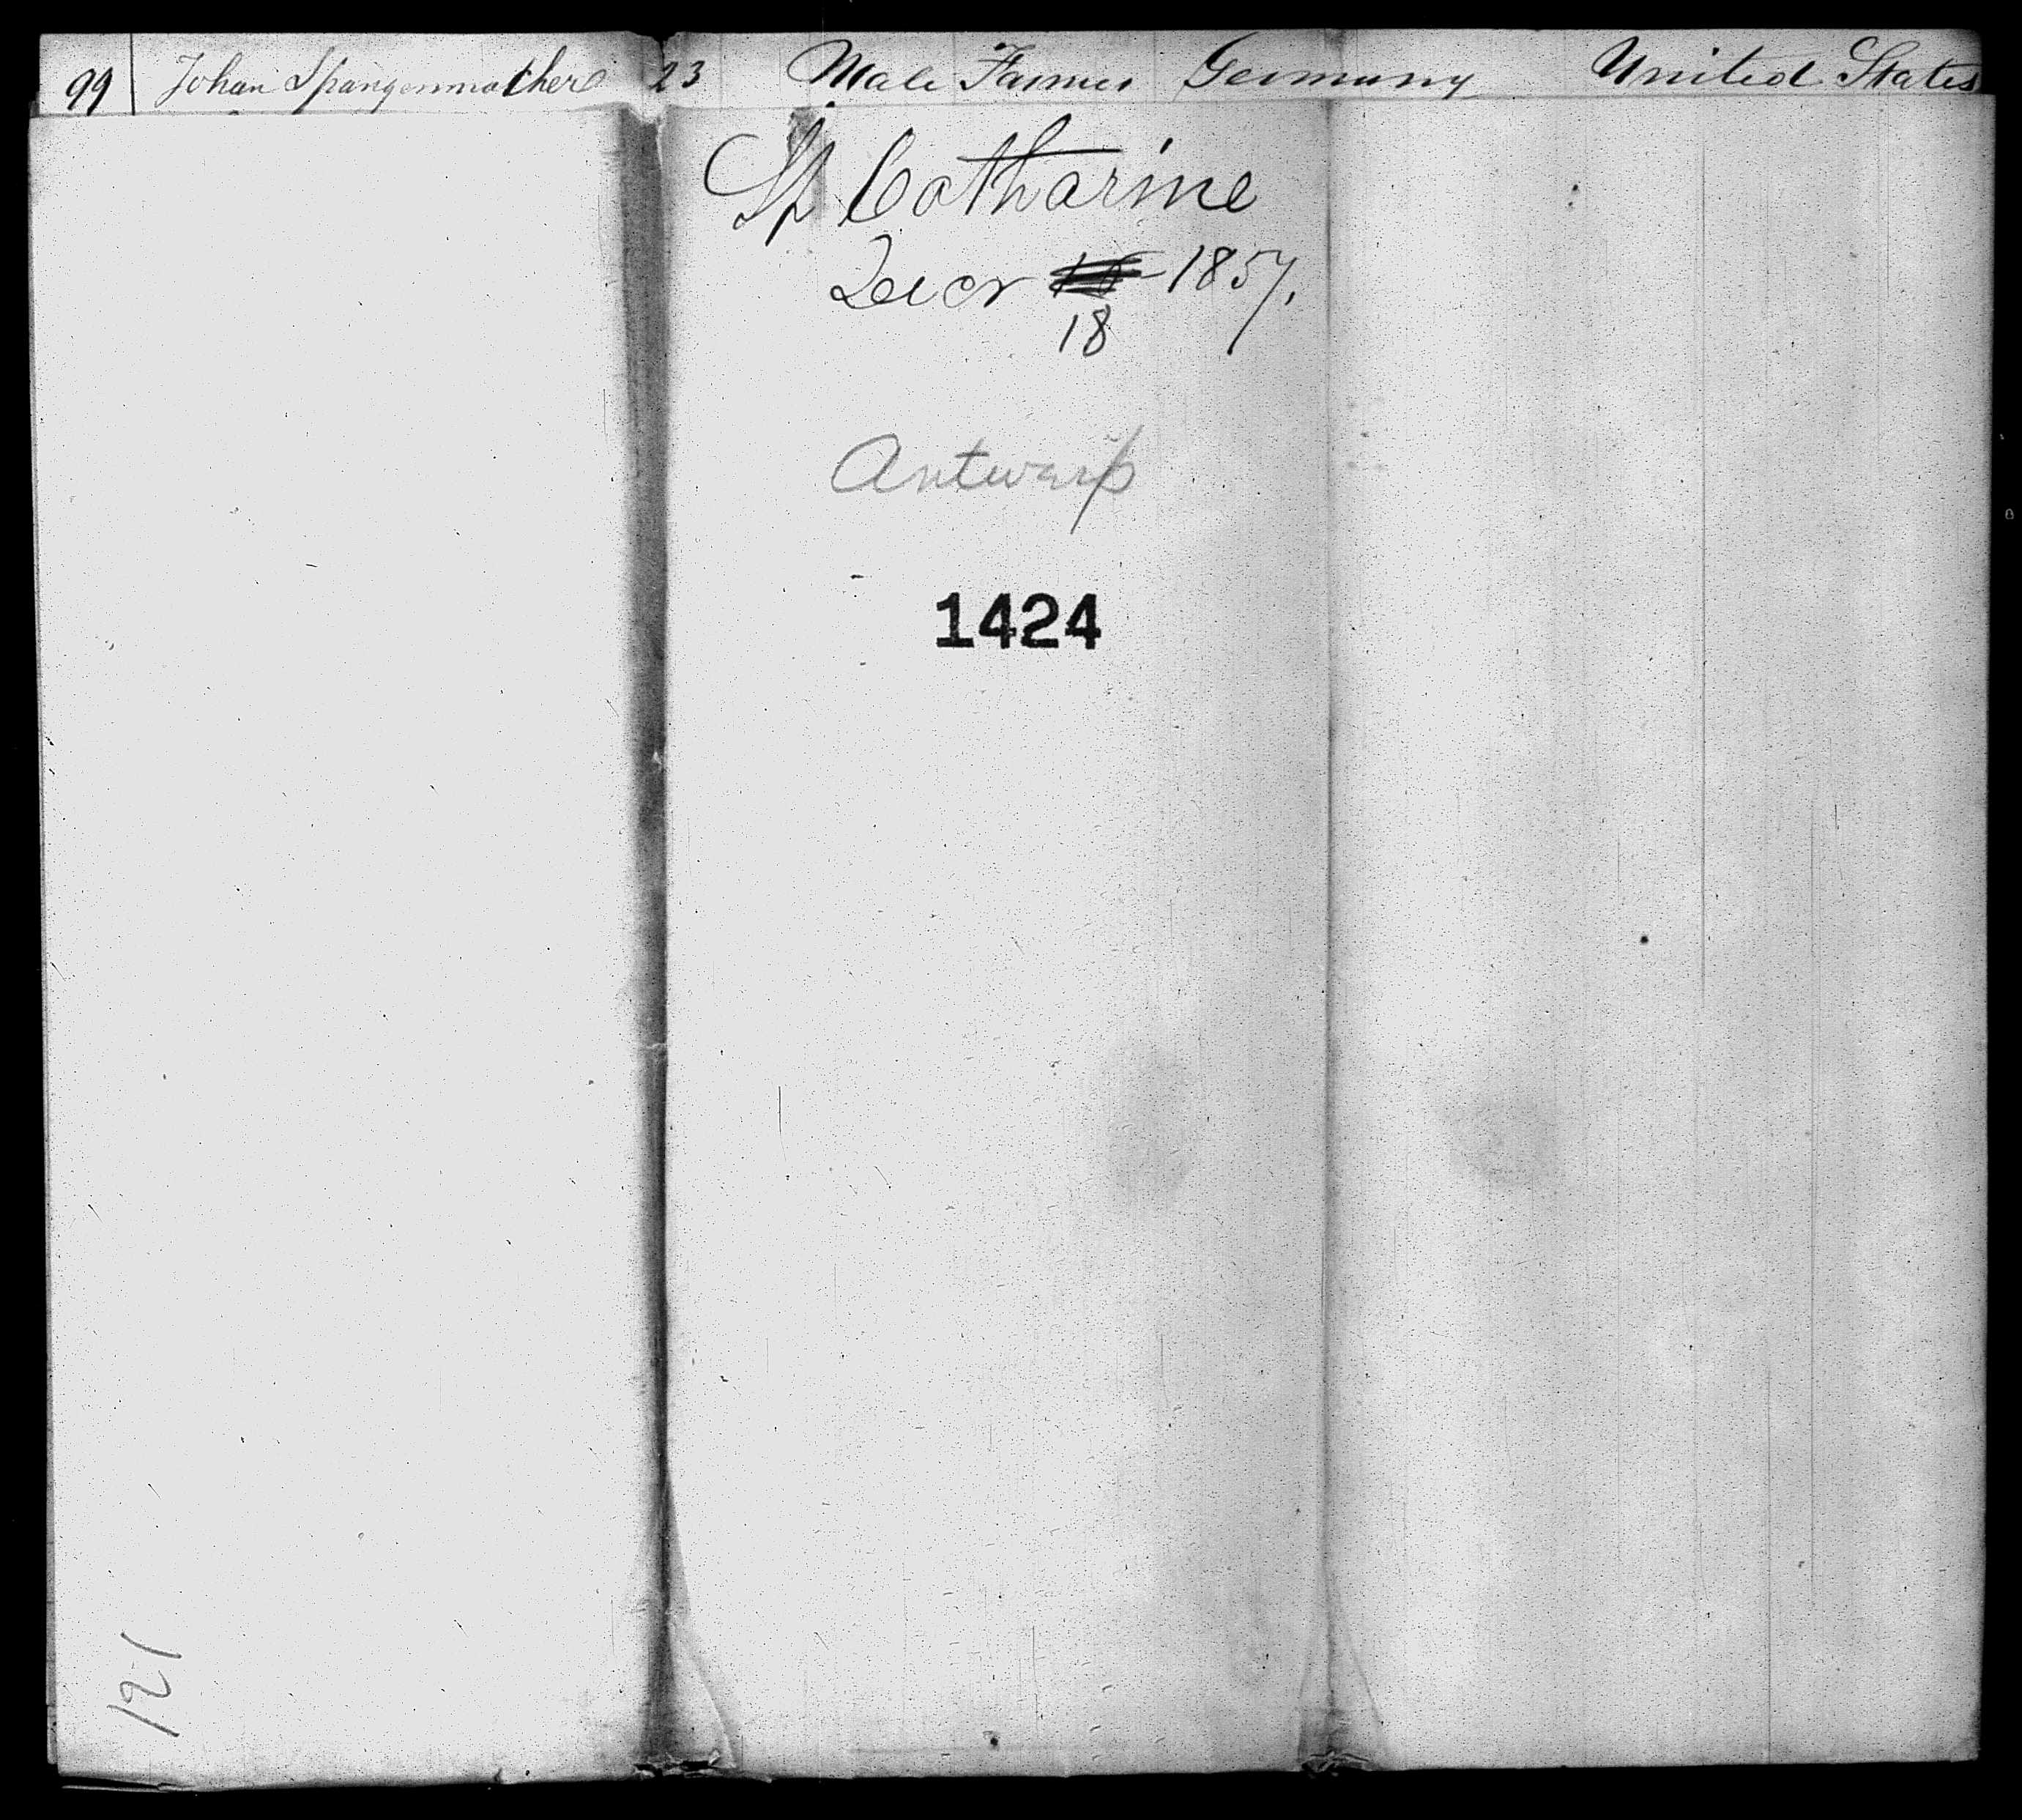 99 Johan Spangenmathere 23 Male Farmer Germany United States
Sp Catharine
Decr 1857.
18
Antwerp
1424
121